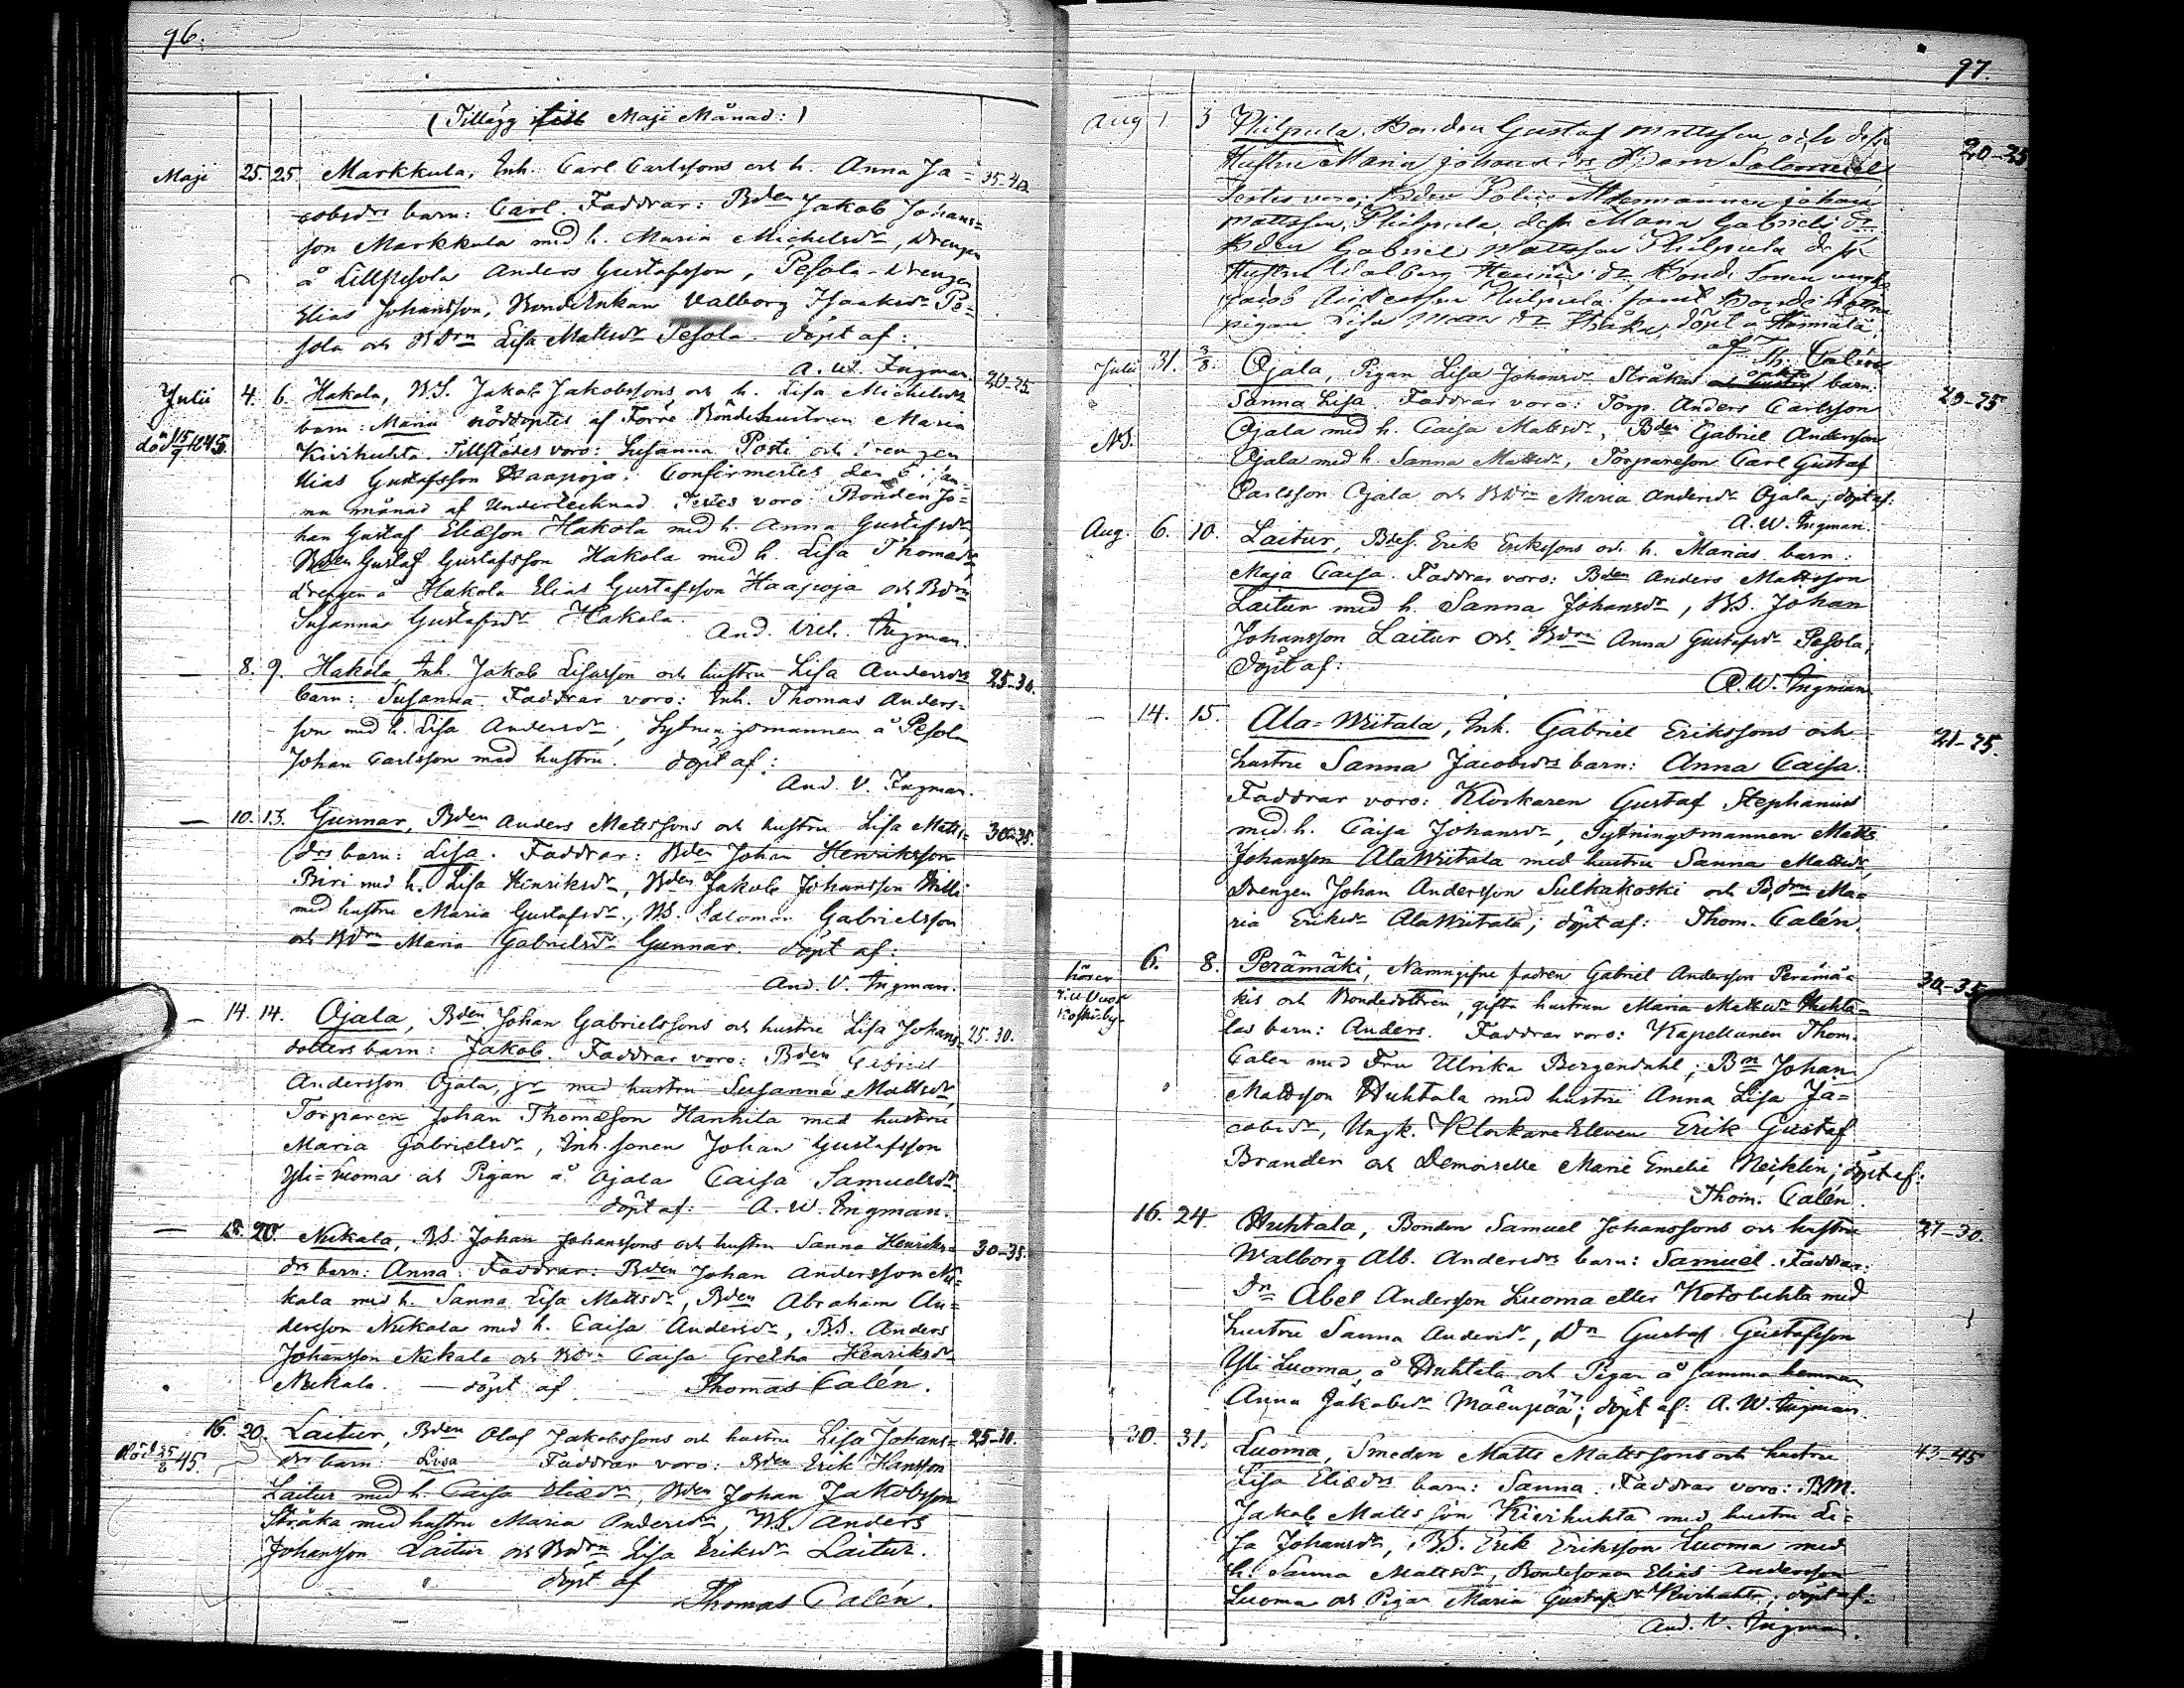 96.
(Tillägg till Maji Månad:)
Maji 25. 25. Markkula, Inh. Carl Carlssons och h. Anna Ja= 35-40.
cobsdrs barn: Carl Faddrar: Bden Jakob Johans=
son Markkula med h. Maria Michelsdr, Drengen
å Lillpesola Anders Gustafsson, Pesola-drengen
Elias Johansson, Bonde Enkan Valborg Isaaksdr Pe=
sola och Bdrn Lisa Mattsdr Pesola. döpt af:
A. W. Ingman.
Julii 4. 6. Hakola, B.S. Jakob Jakobssons och h. Lisa Michelsdrs 20-25.
barn: Maria nöddöptes af Förre Bondehustrun Maria
död 15/7 1845. Kivihuhta. Tillstädes voro: Susanna Posti och drengen
Elias Gustafsson Haapoja. Confirmertes den 6 i sam=
ma månad af Undertecknad. Testes voro Bonden Jo=
han Gustaf Eliæson Hakola med h. Anna Gustafsdr,
Bden Gustaf Gustafsson Hakola med h. Lisa Thomædr
drengen å Hakola Elias Gustafsson Haapoja och Bdrn
Susanna Gustafsdr Hakola.
And. Vilh. Ingman.
— 8. 9. Hakola, Inh. Jakob Eliasson och hustru Lisa Andersdrs 25-30.
barn: Susanna. Faddrar voro: Inh. Thomas Anders=
son med h. Lisa Andersdr, Sytningsmannen å Pesola
Johan Carlsson med hustru. döpt af:
And. V. Ingman.
— 10. 13. Gunnar, Bden Anders Mattssons och hustru Lisa Matts= 30-35.
drs barn: Lisa. Faddrar: Bden Johan Henriksson
Biri med h. Lisa Henriksdr, Bden Jakob Johansson Willi
med hustru Maria Gustafsdr, B.S. Salomon Gabrielsson
och Bdrn Maria Gabrielsdr Gunnar. döpt af:
And. V. Ingman.
— 14. 14. Ojala, Bden Johan Gabrielssons och hustru Lisa Johans= 25-30.
dotters barn: Jakob. Faddrar voro: Bden Gabriel
Andersson Ojala, jr med hustru Susanna Mattsdr,
Torparen Johan Thomæson Hanhila med hustru
Maria Gabrielsdr, Inh. sonen Johan Gustafsson
Yli=Luoma och Pigan å Ojala Caisa Samuelsdr.
döpt af: A. W. Ingman.
— 18. 20. Nukala, B.S. Johan Johanssons och hustru Sanna Henriks= 30-35.
drs barn: Anna. Faddrar: Bden Johan Andersson Nu=
kala med h. Sanna Lisa Mattsdr, Bden Abraham An=
dersson Nukala med h. Caisa Andersdr, B.S. Anders
Johansson Nukala och Bdrn Caisa Gretha Henriksdr
Nukala. — döpt af Thomas Calén.
16. 20. Laitur, Bden Olof Jakobssons och hustru Lisa Johans= 25-30.
död 25/8 45. drs barn: Lisa Faddrar voro: Bden Erik Hansson
Laitur med h. Caisa Eliædr, Bden Johan Jakobsson
Stråka med hustru Maria Andersdr, B.S. Anders
Johansson Laitur och Bdrn Lisa Eriksdr Laitur.
döpt af
Thomas Calén.
97.
Aug 1 3 Philpula. Bonden Gustaf Mattsson och dess 20-25
Hustru Maria Johansdrs Barn Salomon
Testes voro; Bden Johan
Mattsson, Philpula, dess Maria Gabrielsdr
Bden Gabriel Mattsson Philpula dess
Hustru Walborg dr, Bonde Sonen
Jacob Philpula samt Bonde
pigan Lisa Matts dr Stråka, döpt å
af Th. Calén
Julii 31. 3/8. Ojala, Pigan Lisa Johansdr Stråkas oäkta barn: 20-25
Sanna Lisa. Faddrar voro: Torp. Anders Carlsson
NB. Ojala med h. Caisa Mattsdr, Bden Gabriel Andersson
Ojala med h. Sanna Mattsdr, Torpareson Carl Gustaf
Carlsson Ojala och Bdrn Maria Andersdr Ojala; döpt af:
A. W. Ingman.
Aug. 6. 10. Laitur, Bdes. Erik Erikssons och h. Marias barn:
Maja Caisa. Faddrar voro: Bden Anders Mattsson
Laitur med h. Sanna Johansdr, B.S. Johan
Johansson Laitur och Bdrn Anna Gustafsdr Pesola;
döpt af:
A. W. Ingman
— 14. 15. Ala=Writala, Inh. Gabriel Erikssons och 21-25.
hustru Sanna Jacobsdrs barn: Anna Caisa.
Faddrar voro: Klockaren Gustaf Stephanius
med h. Caisa Johansdr, Sytningsmannen Matts
Johansson AlaWritala med hustru Sanna Mattsdr,
Drengen Johan Andersson Sulkakoski och B,drn Ma=
ria Eriksdr AlaWritala; döpt af: Thom. Calén.
6. 8. Perämäki, Namngifne fadren Gabriel Andersson Perämä= 30-35
hörer till kis och Bondedottren, gifta hustrun Maria Mattsdr Huhta=
las barn: Anders. Faddrar voro: Kapellanen Thom.
Calen med Fru Ulrika Bergendahl; Bn Johan
Mattsson Huhtala med hustru Anna Lisa Ja=
cobsdr, Ungk. Klockare Eleven Erik Gustaf
Brander och Demoiselle Marie Emelie Neiklin; döpt af:
Thom. Calén
16. 24. Huhtala, Bonden Samuel Johanssons och hustru 27-30.
Walborg Alb. Andersdrs barn: Samuel. Faddrar:
Dn Abel Andersson Luoma eller Kotoluhta med
hustru Sanna Andersdr, Dn Gustaf Gustafsson
Yli Luoma, å Huhtala och Pigan å samma hemman
Anna Jakobsdr Mäenpää; döpt af: A. W. Ingman.
30. 31. Luoma, Smeden Matts Mattssons och hustru 43-45
Lisa Eliædrs barn: Sanna. Faddrar voro: BM.
Jakob Mattsson Kivihuhta med hustru Li=
sa Johansdr, B.S. Erik Eriksson Luoma med
h. Sanna Mattsdr, Bondesonen Elias Andersson
Luoma och Pigan Maria Gustafsdr Kivihuhta; döpt af:
And. V. Ingman.